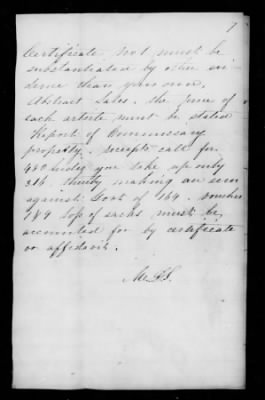 7
Certificate not must be
substantiated by other evi-
dence than your own.
Abstract Sales. the Price of
each article must be stated
Report of Commissary
property. receipts call for
480 hides you take up only
316. thereby making an error
against Govt of 164. voucher
1 & 4 loss of sacks must be
accounted for by certificate
or affidavit.